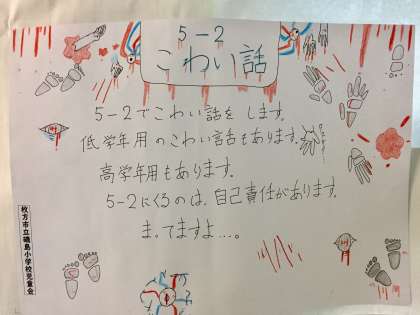 5-2
こわい話
5-2でこわい話をします。
低学年用のこわい話もあります。
高学年用もあります。
5-2にくるのは、自己責任があります。
まってますよ…。
枚方市立磯島小学校児童会